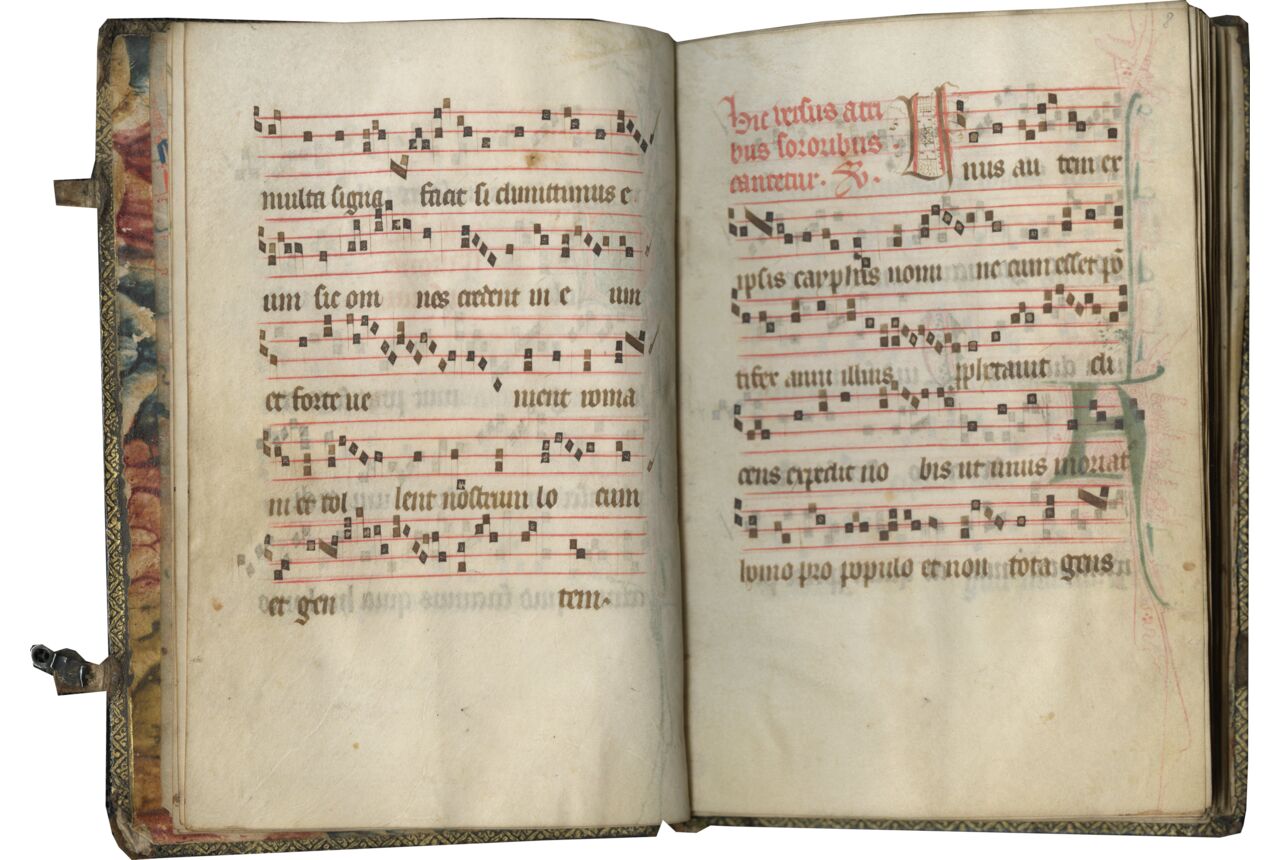 multa signa facit si dimittimus e
um sic om nes credent in e um
et forte ue nient roma
ni et tol lent nostrum lo cum
et gen tem.
8
Hic versus a tri
bus sororibus
cantetur. V.
Unus au tem ex
ipsis cayphas nomi ne cum esset pō
tifex anni illius pphetauit di
cens expedit no bis ut unus moriat
homo pro populo et non tota gens